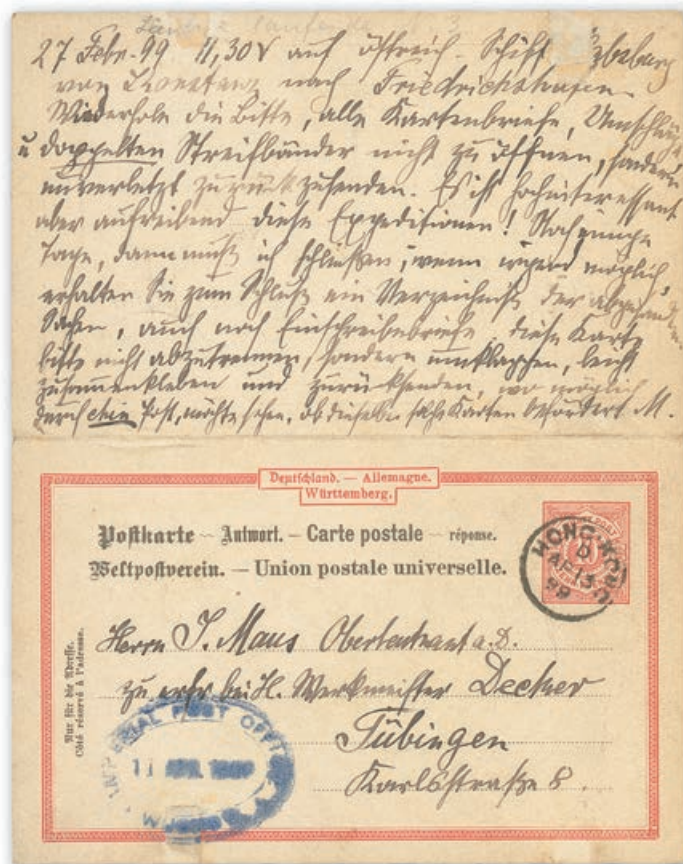 27 Febr. 99 11,30 V auf östreich. Schiff
von Constanz nach Friedrichshafen.
Wiederhole die Bitte, alle Kartenbriefe,
u doppelten Streifbänder nicht zu öffnen, sondern
unverletzt zurückzusenden. Es ist hochinteressant
aber aufreibend diese Expeditionen! Noch einige
Tage, dann muß ich schließen, wenn irgend möglich,
erhalten Sie zum Schluß ein Verzeichniß der
Sachen, auch noch Einschreibebriefe diese Karte
bitte nicht abzutrennen, sondern umklappen, leicht
zusammenkleben und zurücksenden, wo möglich
durch chin Post, möchte sehen, ob dieselbe solche Karten befördert M.
Deutschland. — Allemagne.
Württemberg.
Postkarte — Antwort. — Carte postale — réponse.
Weltpostverein. — Union postale universelle.
HONG-KONG
D
AP 13
99
Nur für die Adresse.
Côté réservé à l'adresse.
Herrn J. Maus Oberleutnant a. D.
zu erfr bei H. Werkmeister Decker
Tübingen
Karlsstraße 8.
IMPERIAL POST OFFICE
11 APR